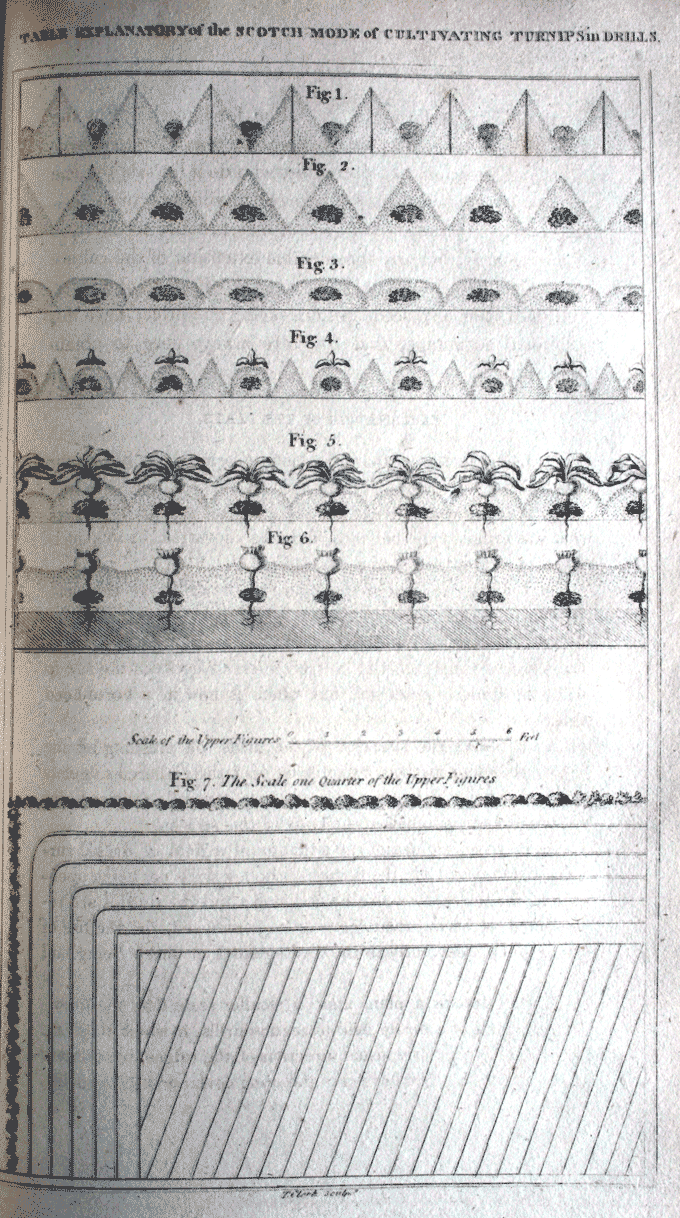 TABLE EXPLANATORY of the SCOTCH MODE of CULTIVATING TURNIPS in DRILLS.
Fig. 1.
Fig. 2.
Fig. 3.
Fig. 4.
Fig. 5.
Fig. 6.
Scale of the Upper Figures 0 1 2 3 4 5 6 Feet
Fig. 7. The Scale one Quarter of the Upper Figures
T. Clerk sculpt